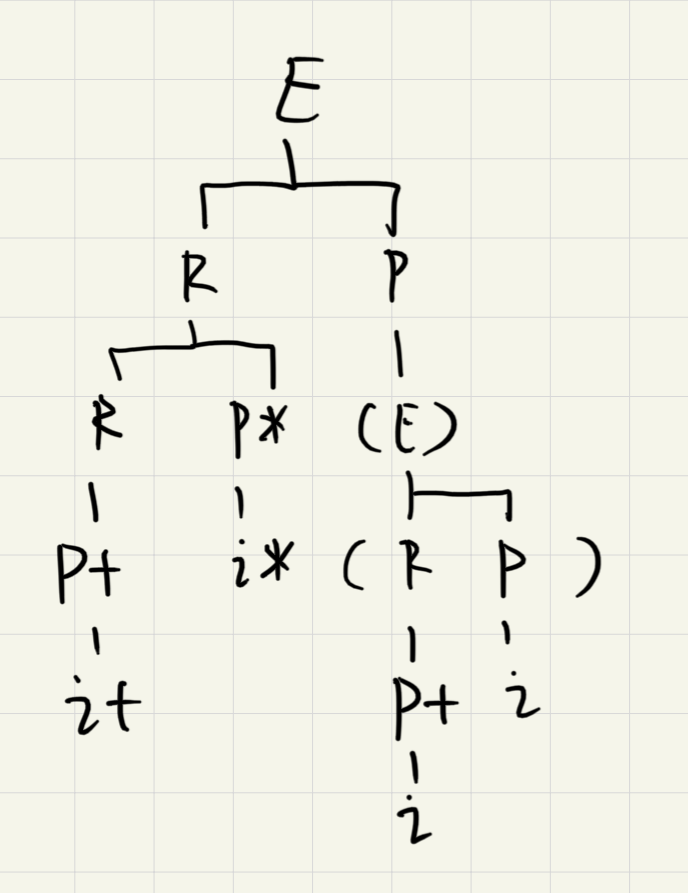 E
R P
R P* (E)
P+ i* ( R P )
i+ P+ i
i